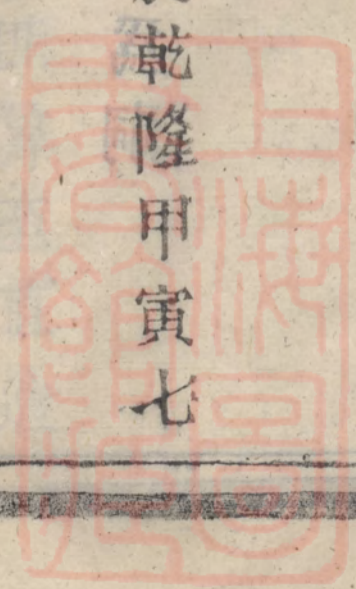 乾隆甲寅七
上海圖
書館藏